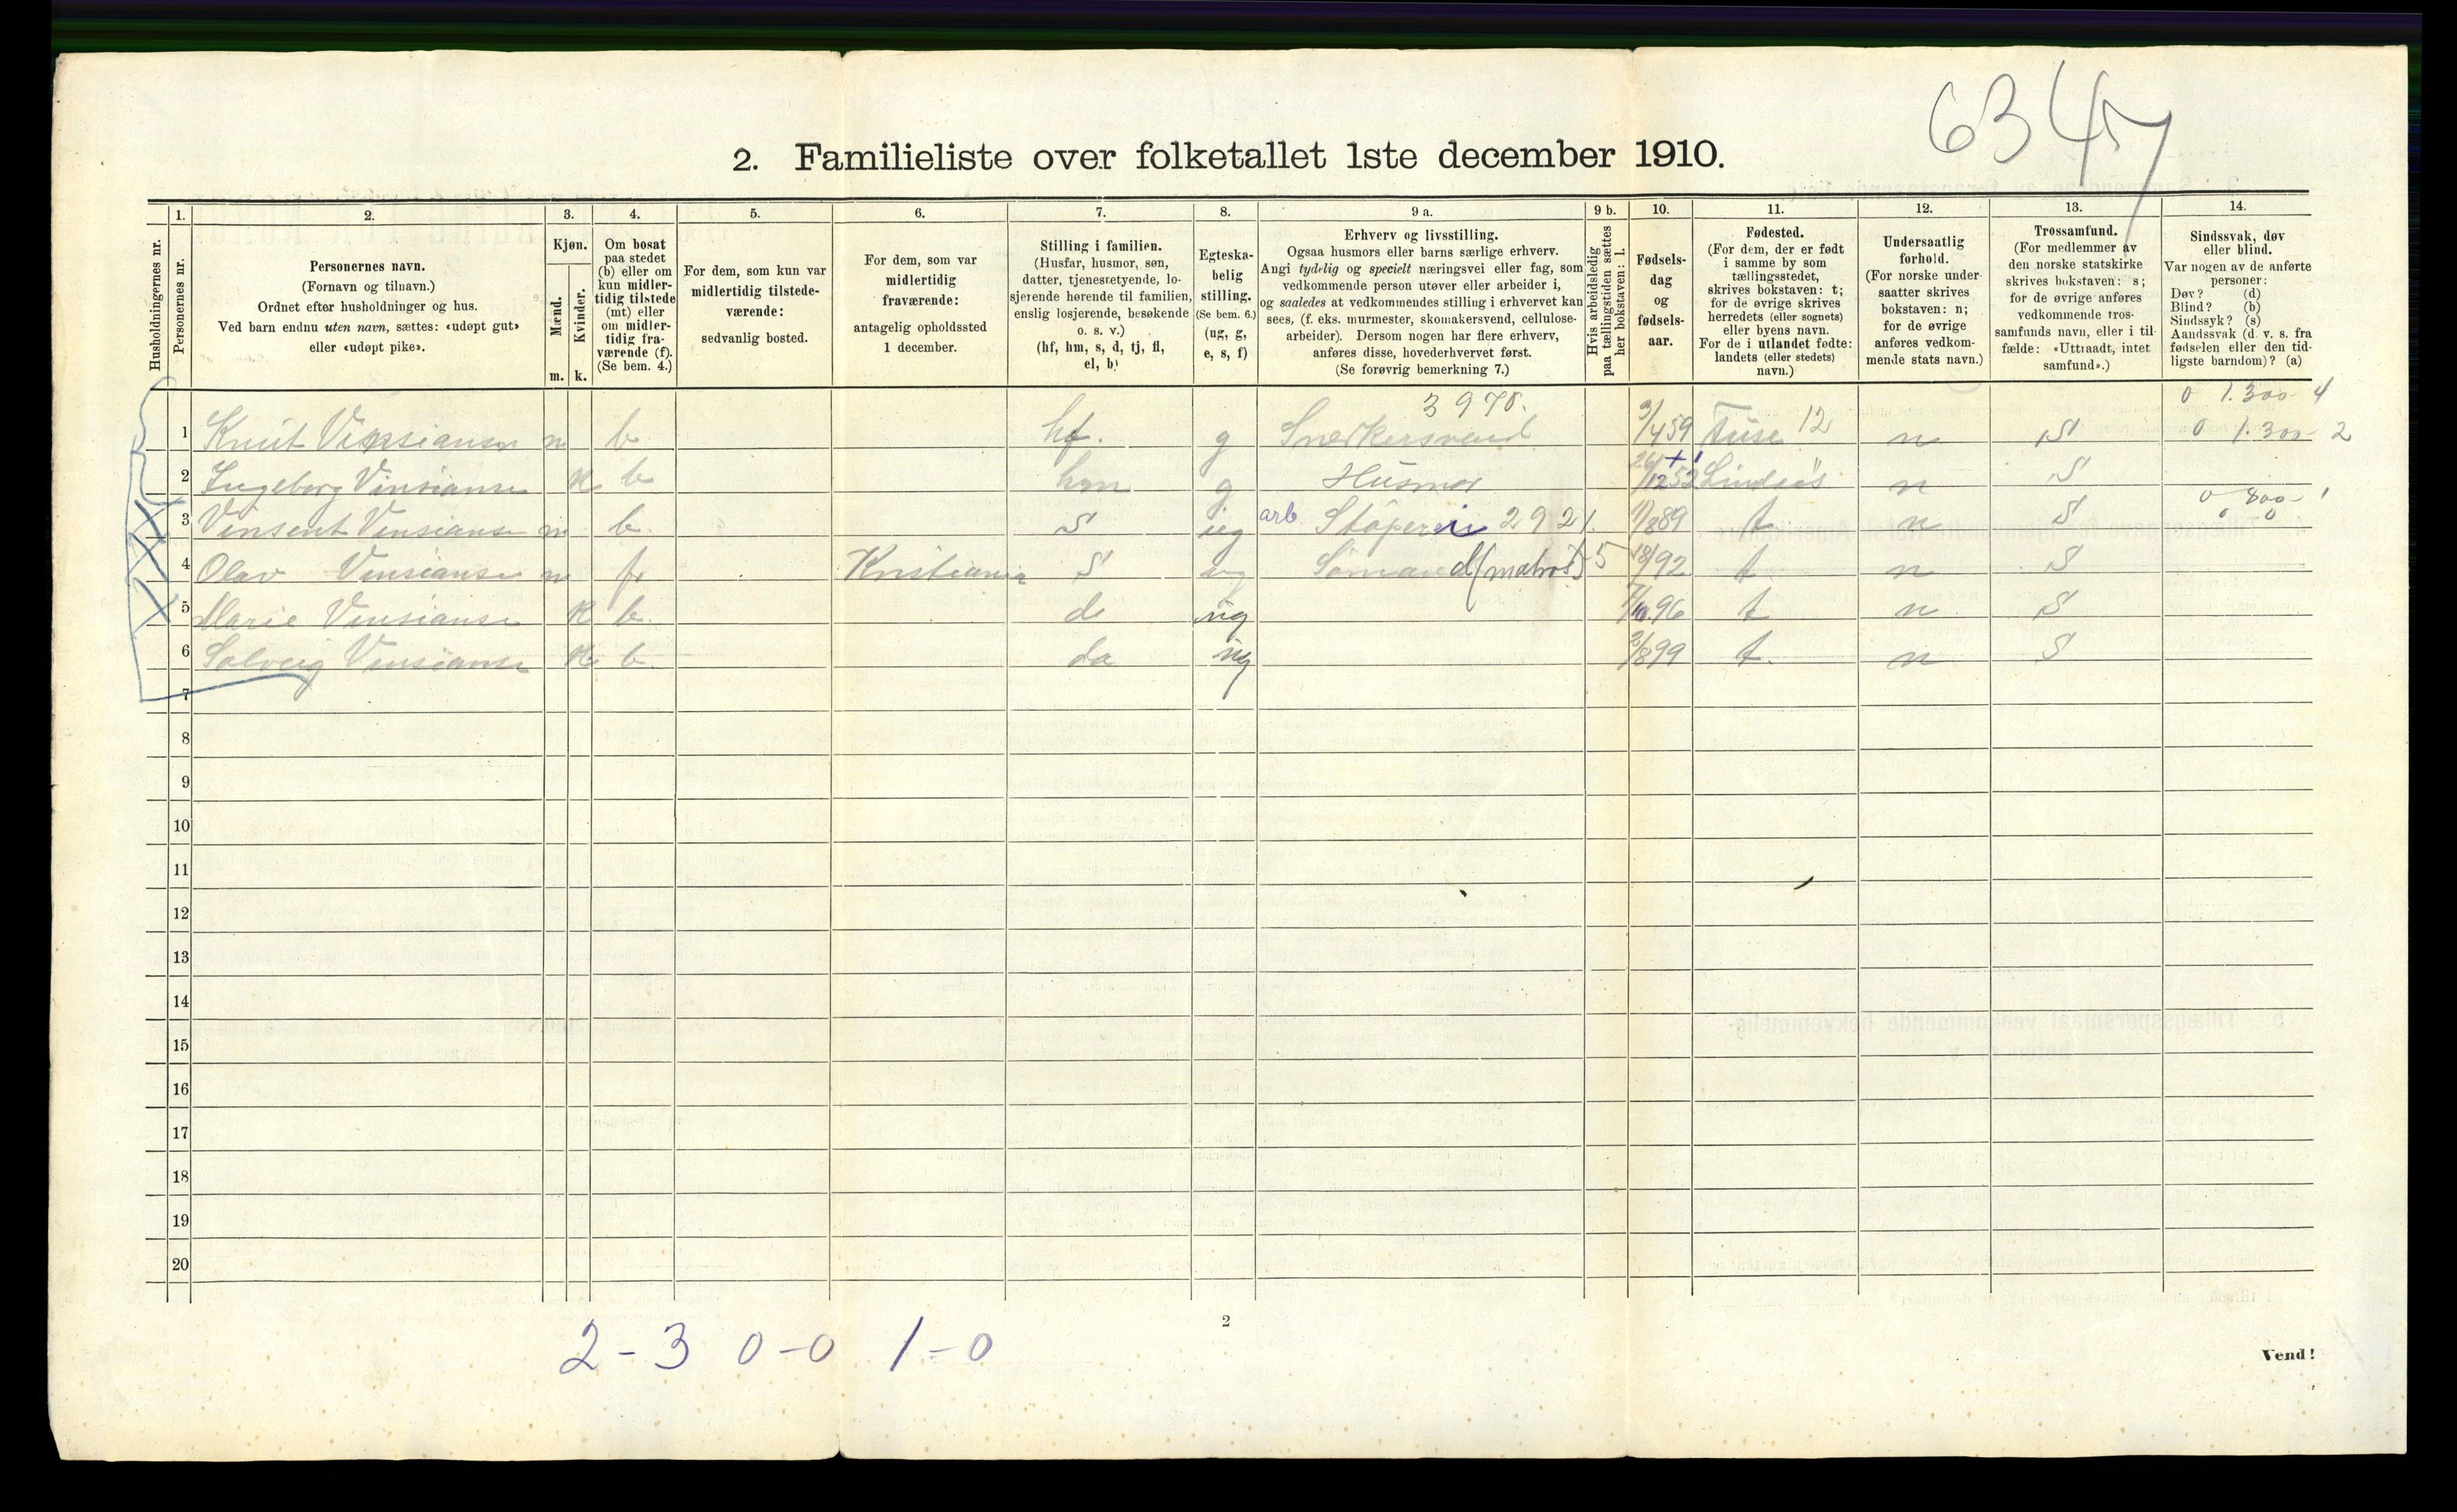 6347
2. Familieliste over folketallet 1ste december 1910.
Husholdningernes nr.
1. Personernes nr.
2. Personernes navn. (Fornavn og tilnavn.) Ordnet efter husholdninger og hus. Ved barn endnu uten navn, sættes: «udøpt gut» eller «udøpt pike».
3. Kjøn. Mænd. m. Kvinder. k.
4. Om bosat paa stedet (b) eller om kun midlertidig tilstede (mt) eller om midlertidig fraværende (f). (Se bem. 4.)
5. For dem, som kun var midlertidig tilstedeværende: sedvanlig bosted.
6. For dem, som var midlertidig fraværende: antagelig opholdssted 1 december.
7. Stilling i familien. (Husfar, husmor, søn, datter, tjenestetyende, losjerende hørende til familien, enslig losjerende, besøkende o. s. v.) (hf, hm, s, d, tj, fl, el, b)
8. Egteskabelig stilling. (Se bem. 6.) (ug, g, e, s, f)
9 a. Erhverv og livsstilling. Ogsaa husmors eller barns særlige erhverv. Angi tydelig og specielt næringsvei eller fag, som vedkommende person utøver eller arbeider i, og saaledes at vedkommendes stilling i erhvervet kan sees, (f. eks. murmester, skomakersvend, cellulosearbeider). Dersom nogen har flere erhverv, anføres disse, hovederhvervet først. (Se forøvrig bemerkning 7.)
9 b. Hvis arbeidsledig paa tællingstiden sættes her bokstaven: l.
10. Fødselsdag og fødselsaar.
11. Fødested. (For dem, der er født i samme by som tællingsstedet, skrives bokstaven: t; for de øvrige skrives herredets (eller sognets) eller byens navn. For de i utlandet fødte: landets (eller stedets) navn.)
12. Undersaatlig forhold. (For norske undersaatter skrives bokstaven: n; for de øvrige anføres vedkommende stats navn.)
13. Trossamfund. (For medlemmer av den norske statskirke skrives bokstaven: s; for de øvrige anføres vedkommende trossamfunds navn, eller i tilfælde: «Uttraadt, intet samfund».)
14. Sindssvak, døv eller blind. Var nogen av de anførte personer: Døv? (d) Blind? (b) Sindssyk? (s) Aandssvak (d. v. s. fra fødselen eller den tidligste barndom)? (a)
3970. 0 1.300 4
1 Knut Vinsiansen m b. hf. g Snekkersvend 3/4 59 Fuse 12 n S 0 1.300 2
2 Ingeborg Vinsiansen k b hm g Husmor 26/12 52 Lindaas n S
3 Vinsent Vinsiansen m b. S ug arb Støperi 2921. 17/8 89 t n S 0 800 1
0 0
4 Olav Vinsiansen m f Kristiania S ug Sømand (matros) 5 92 t n S
5 Marie Vinsiansen k b. d ug 7/10 96 t n S
6 Solveig Vinsiansen k b da ug 2/8 99 t. n S
7
8
9
10
11
12
13
14
15
16
17
18
19
20
2
2-3 0-0 1-0
Vend!